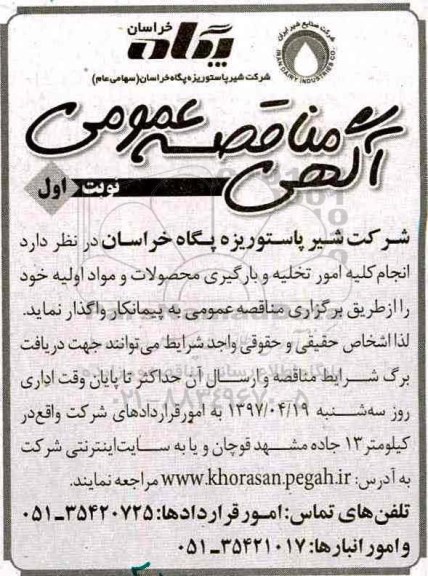 شرکت صنایع شیر ایران
IRAN DAIRY INDUSTRIES CO.
پگاه خراسان
شرکت شیر پاستوریزه پگاه خراسان (سهامی عام)
آگهی مناقصه عمومی
نوبت اول
شرکت شیر پاستوریزه پگاه خراسان در نظر دارد
انجام کلیه امور تخلیه و بارگیری محصولات و مواد اولیه خود
را از طریق برگزاری مناقصه عمومی به پیمانکار واگذار نماید.
لذا اشخاص حقیقی و حقوقی واجد شرایط می توانند جهت دریافت
برگ شرایط مناقصه و ارسال آن حداکثر تا پایان وقت اداری
روز سه‌شنبه ۱۳۹۷/۰۴/۱۹ به امور قراردادهای شرکت واقع در
کیلومتر ۱۳ جاده مشهد قوچان و یا به سایت اینترنتی شرکت
به آدرس: www.khorasan.pegah.ir مراجعه نمایند.
تلفن های تماس: امور قراردادها: ۳۵۴۲۰۷۲۵-۰۵۱
و امور انبارها: ۳۵۴۲۱۰۱۷-۰۵۱